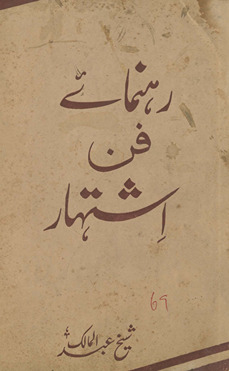 رہنمائے
فن
اِشتہار
69
شیخ عبدالمالک